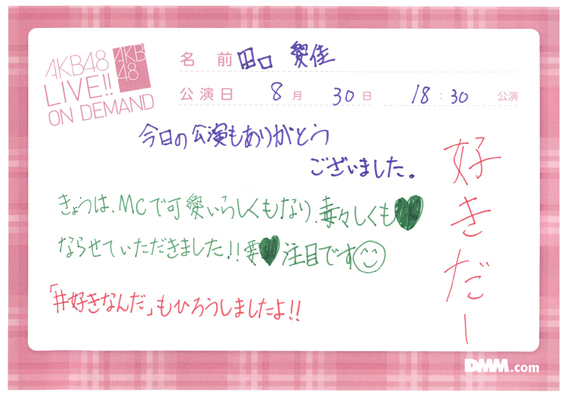 AKB48
LIVE!!
ON DEMAND
AKB
48
名前 田口 愛佳
公演日 8月 30日 18:30 公演
今日の公演もありがとう
ございました。
きょうは、MCで可愛いらしくもなり、毒々しくも♥
ならせていただきました!!要♥注目です
「#好きなんだ」もひろうしましたよ!!
好きだー
DMM.com